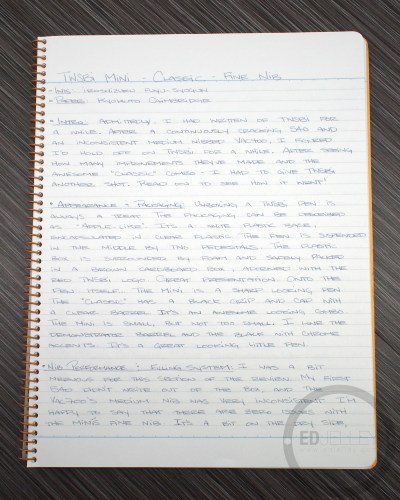 TWSBI Mini - Classic - Fine Nib
• Ink: Iroshizuku Fuyu-Syogun
• Paper: Kyokuto
• Intro: Admittedly, I had written off TWSBI for
a while. After a continuously cracking 540 and
an inconsistent medium nibbed Vac700, I figured
I'd hold off on TWSBI for a while. After seeing
how many improvements they've made and the
awesome "Classic" combo - I had to give TWSBI
another shot. Read on to see how it went!
• Appearance & Packaging: Unboxing a TWSBI pen is
always a treat. The packaging can be described
as "Apple-like". It's a white plastic base,
encapsulated in clear plastic. The pen is suspended
in the middle by two pedestals. The plastic
box is surrounded by foam and safely packed
in a brown cardboard box, adorned with the
red TWSBI logo. Great presentation. Onto the
pen itself. The Mini is a sharp looking pen.
The "Classic" has a black grip and cap with
a clear barrel. It's an awesome looking combo.
The Mini is small, but not too small. I love the
demonstrator barrel and the black with chrome
accents. It's a great looking little pen.
• Nib Performance & Filling System: I was a bit
nervous for this section of the review. My first
540 didn't write out of the box, and the
Vac700's medium nib was very inconsistent. I'm
happy to say that there are zero issues with
the Mini's fine nib. It's a bit on the dry side,
ED JELLEY